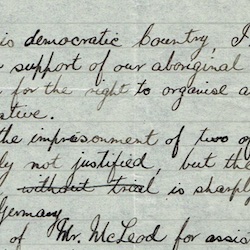 is democratic Country, I
support of our aboriginal
for the right to organise a
ative.
the imprisonment of two of
ly not justified, but the
without trial is sharply
Germany
of Mr. McLeod for assis